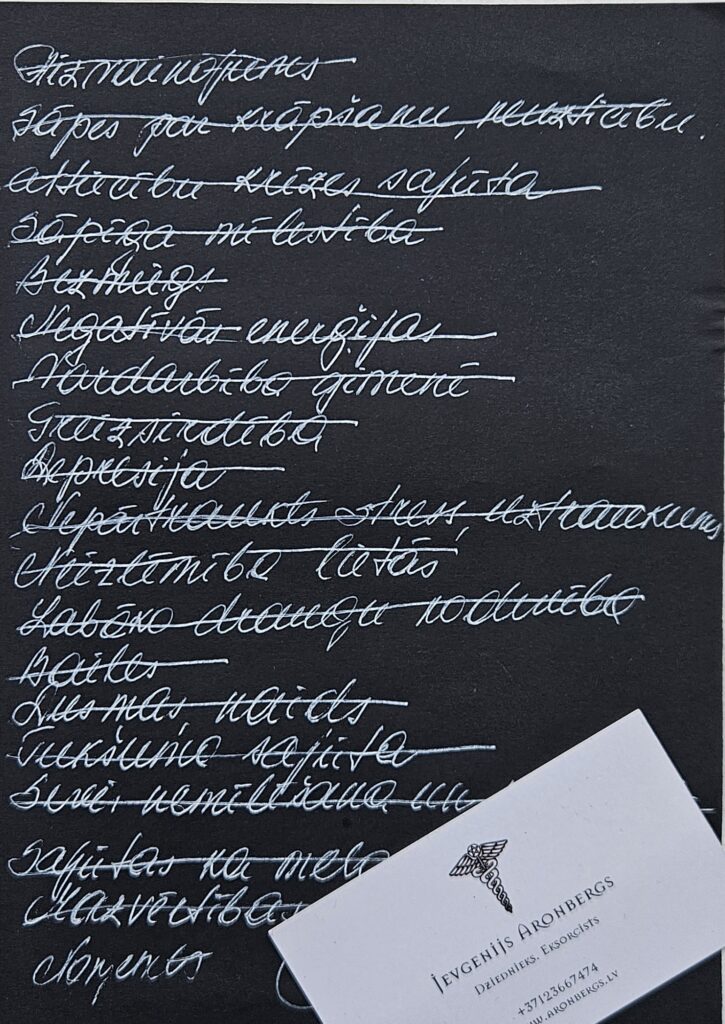 Aizvainojums
Sāpes par krāpšanu, neuzticību.
attiecību krīzes sajūta
Sāpīga mīlestība
Bezmiegs
Negatīvās enerģijas
Vardarbība ģimenē
Greizsirdība
Depresija
Nepārtraukts stress, uztraukums
Neizlēmība lietās
Labāko draugu nodevība
Bailes
Dusmas, naids
Tukšuma sajūta
Sevi nemīlēšana un
Sajūtas ka
Mazvērtības
Noņemts
JEVGENIJS ARONBERGS
DZIEDNIEKS. EKSORCISTS
+37123667474
WWW.ARONBERGS.LV